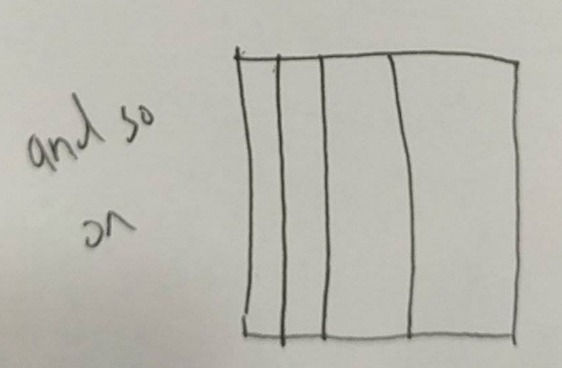 and so
on